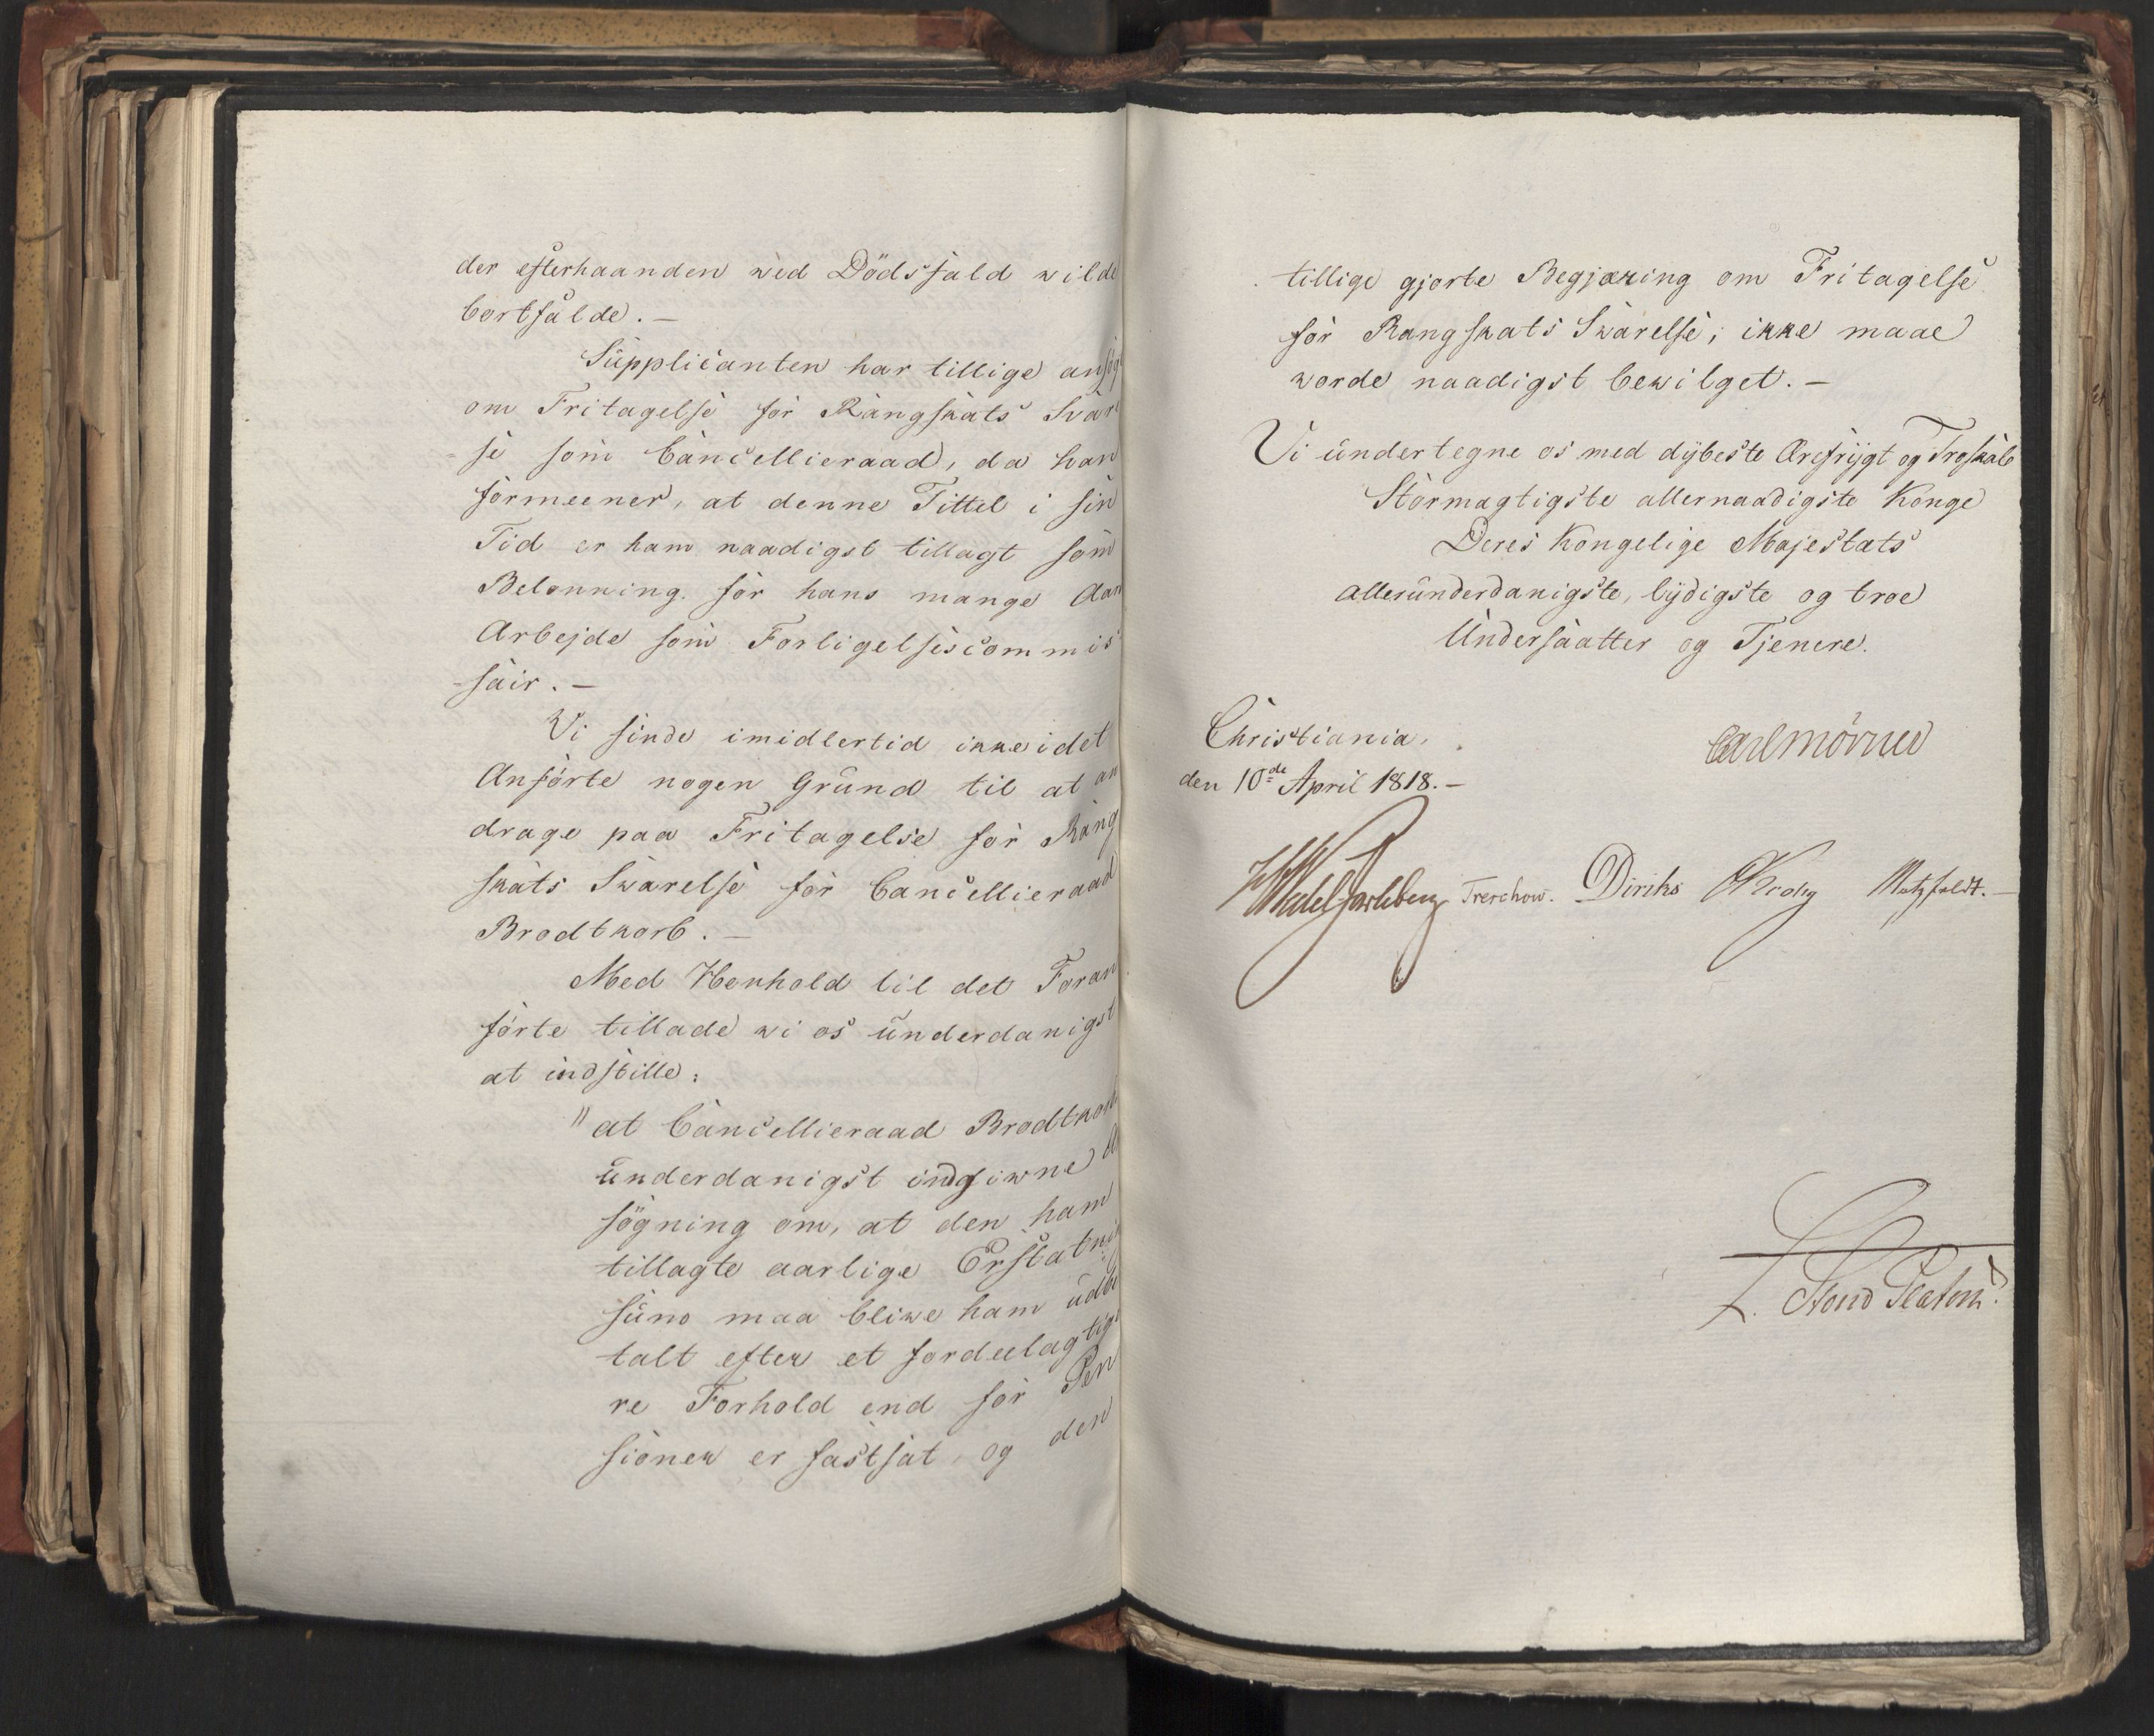 der efterhaanden ved Dödsfald vilde
bortfalde. –
Supplicanten har tillige ansögt
om Fritagelse for Rangskats Svarel
-se som Cancellieraad, da han
formeener, at denne Tittel i sin
Tid er ham naadigst tillagt som
Belønning for hans mange Aars
Arbejde som Forligelsescommis
-sair. –
Vi finde imidlertid ikke i det
Anførte nogen Grund til at an
drage paa Fritagelse for Rang
skats Svarelse for Cancellieraad
Brodtkorb. –
Med Henhold til det Foran
førte tillade vi os underdanigst
at indstille:
"at Cancellieraad Brodtkorbs
underdanigst indgivne An
søgning om, at den ham
tillagte aarlige Erstatnings
sum maa blive ham udbe
talt efter et fordeelagtige
re Forhold end for Pen
sioner er fastsat, og den
tillige gjorte Begjæring om Fritagelse
for Rangskats Svarelse, ikke maae
vorde naadigst bevilget. –
Vi undertegne os med dybeste Ærefrygt og Troskab
Stormægtigste allernaadigste Konge
Deres Kongelige Majestæts
allerunderdanigste, lydigste og troe
Undersaatter og Tjenere.
Christiania,
den 10de April 1818. –
Carl Mörner
HWedel Jarlsberg Treschow. Diriks Krog Motzfeldt. –
L. Stoud Platou